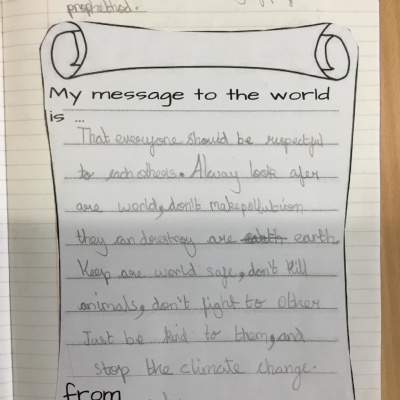 prophethod.
My message to the world
is ...
That everyone should be respectful
to each others. Alway look afer
are world, don't make pollution
they can destroy are earth earth.
Keep are world safe, don't kill
animals, don't fight to other
Just be kind to them, and
stop the climate change.
from